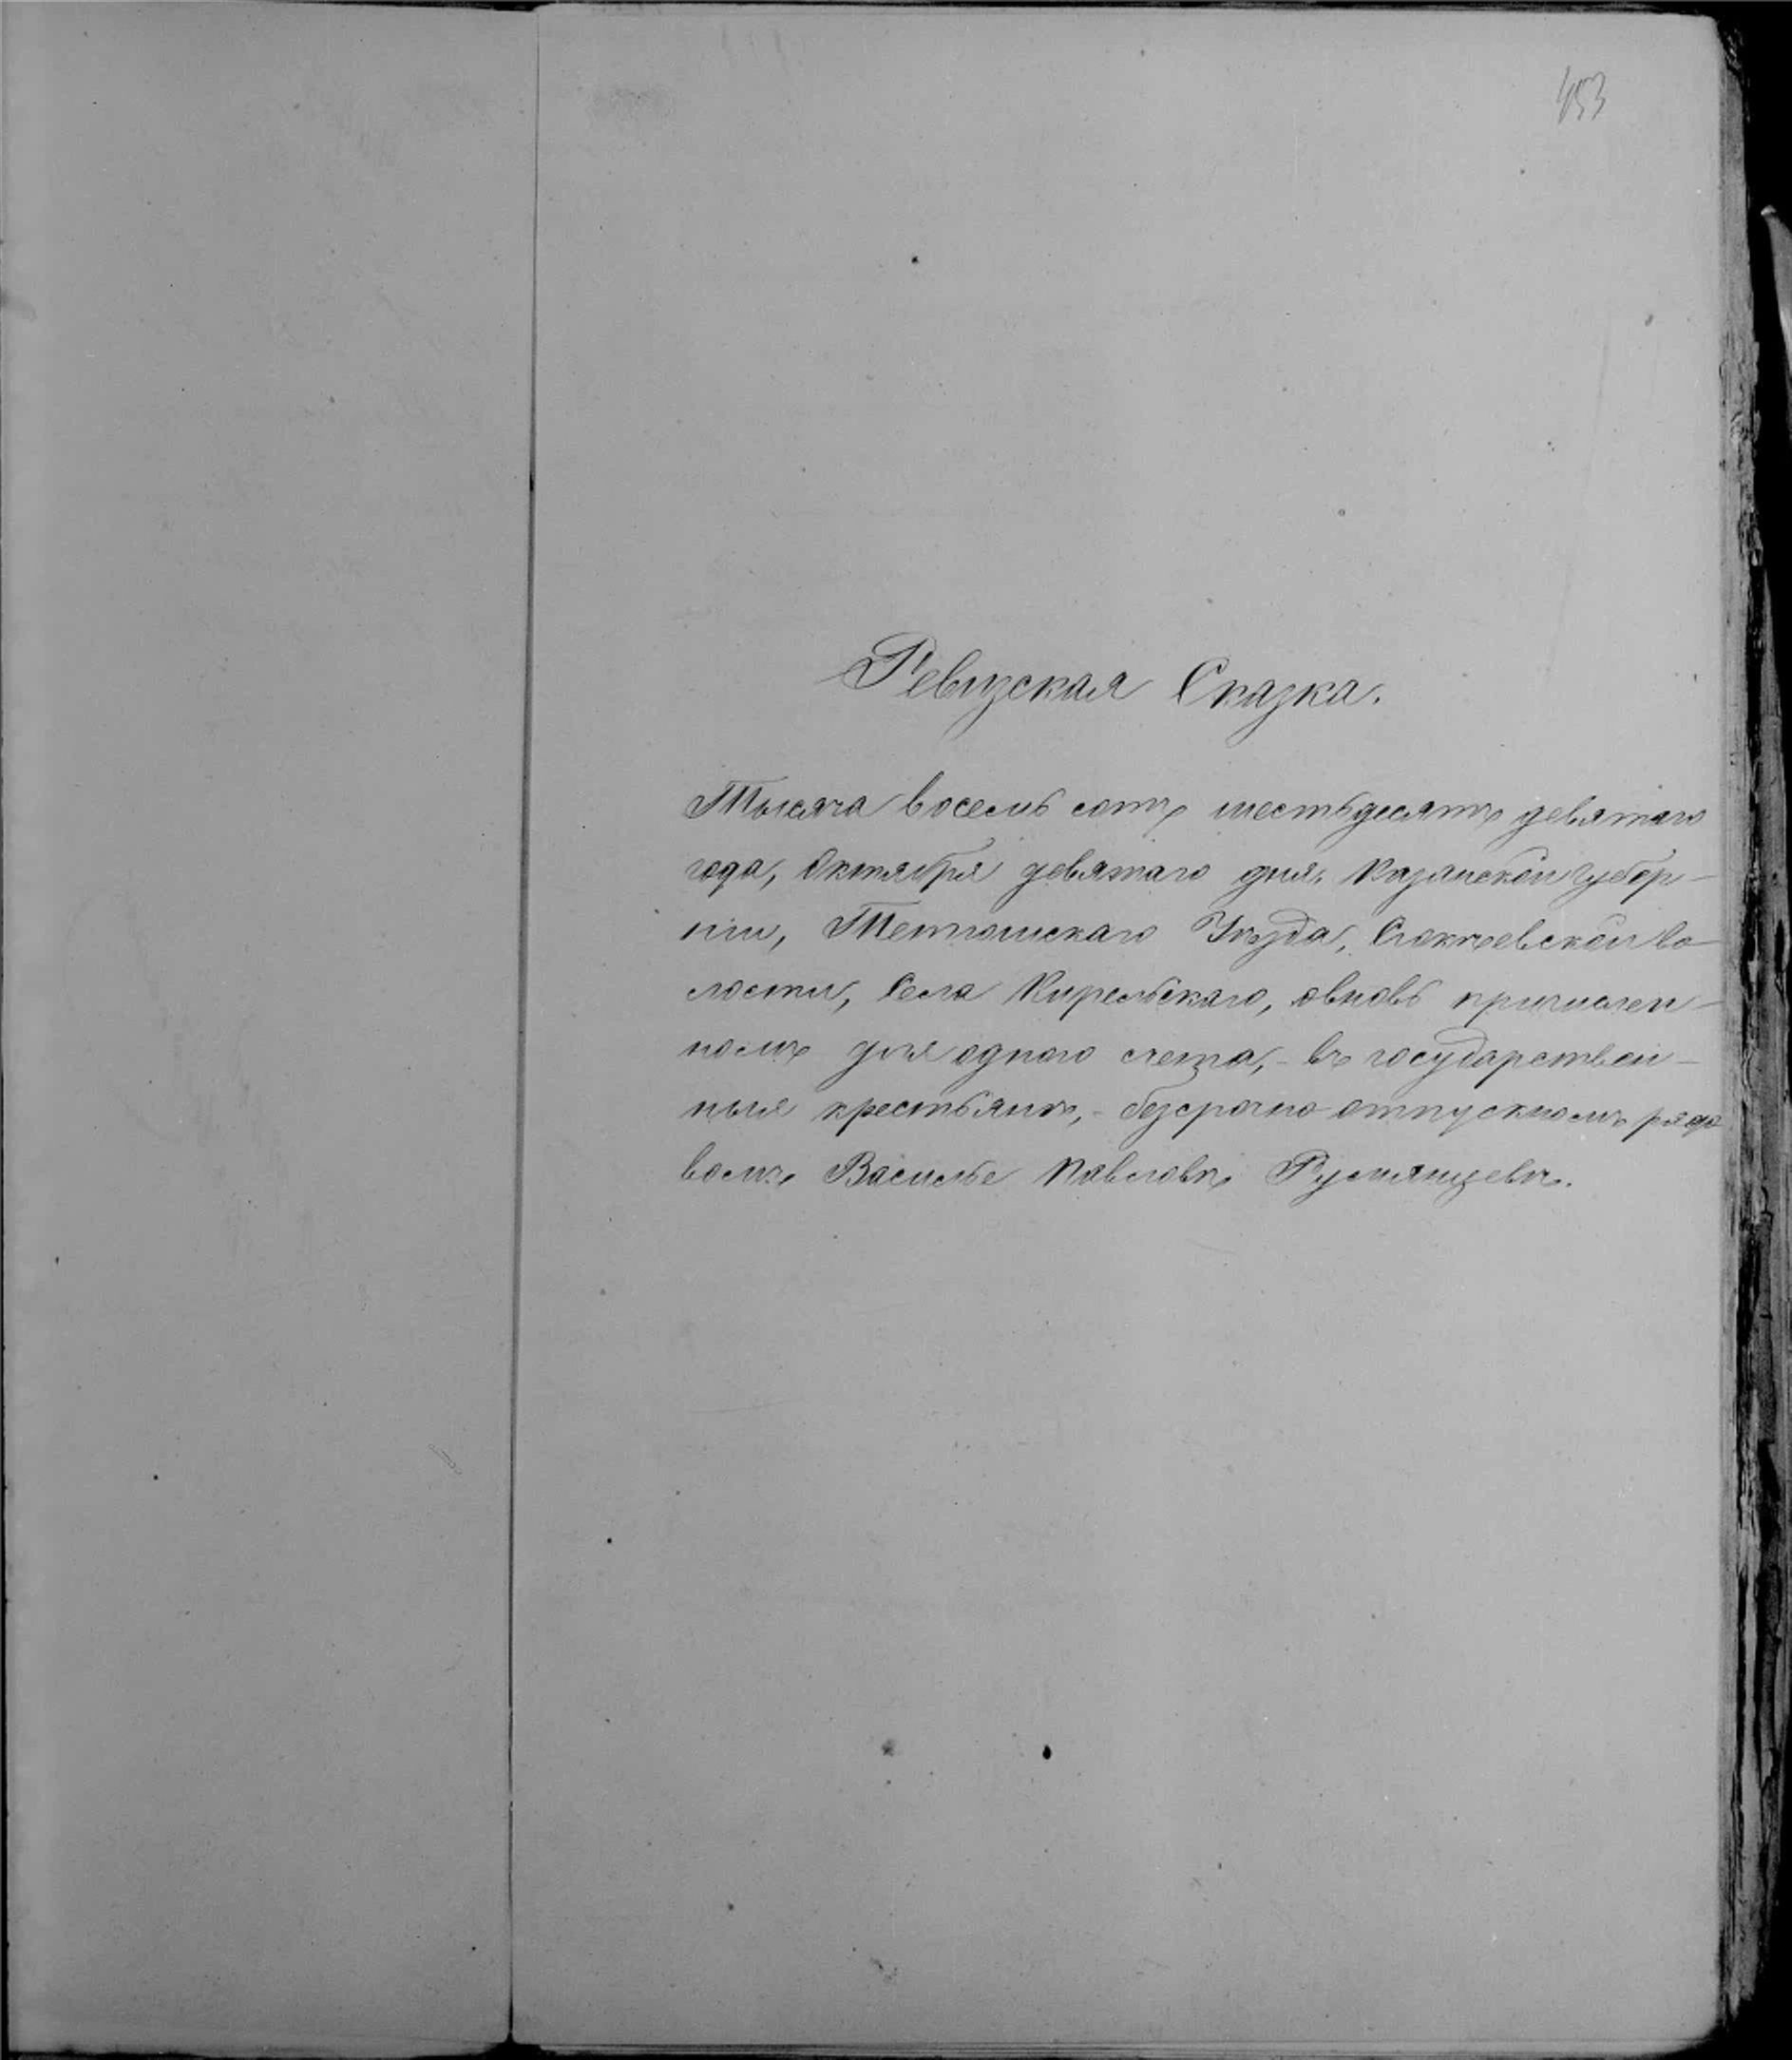 453
Ревизская Сказка.
Тысяча восемь сотъ шестьдесятъ девятаго
года, Октября девятаго дня. Казанской губер-
ніи, Тетюшскаго Уѣзда, во-
лости, Села Кирельскаго, овновь причислен-
номъ для одного счета, - въ государствен-
ныя крестьянъ, - безсрочно отпускномъ рядо
вомъ Василье Павловѣ Румянцевѣ.